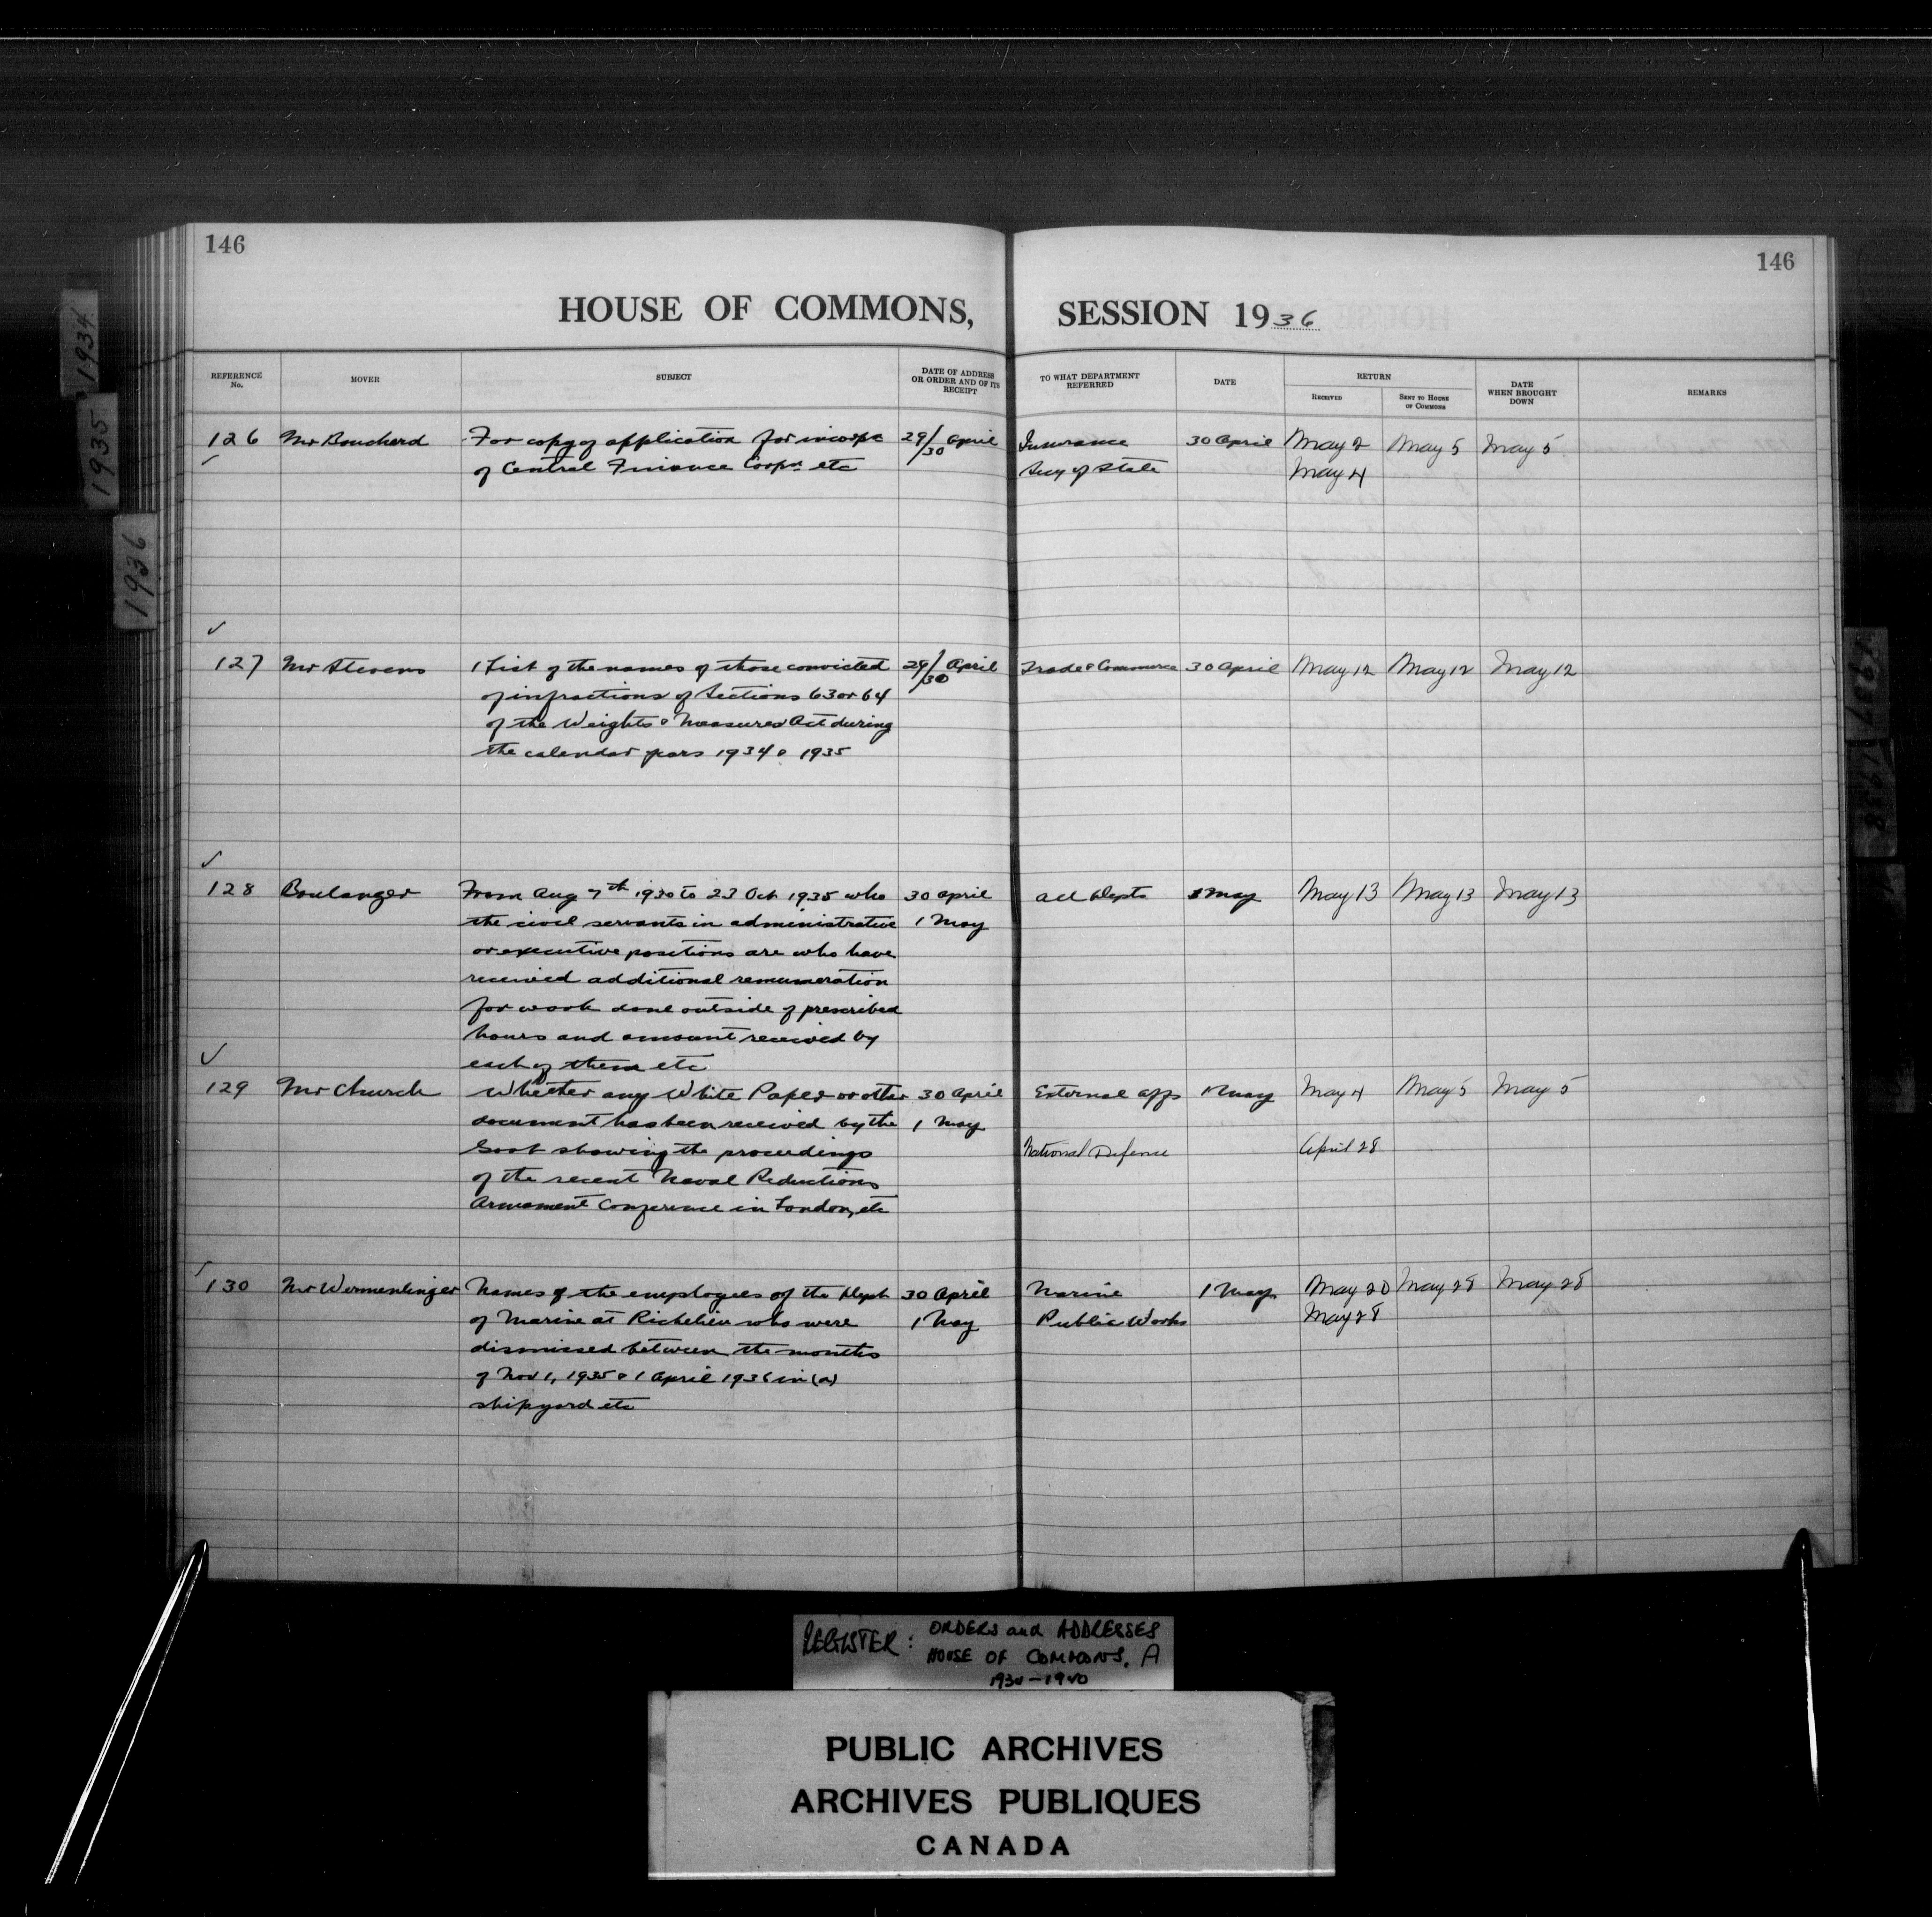 146
146
HOUSE OF COMMONS, SESSION 1936
REFERENCE No. MOVER SUBJECT DATE OF ADDRESS OR ORDER AND OF ITS RECEIPT TO WHAT DEPARTMENT REFERRED DATE RETURN RECEIVED SENT TO HOUSE OF COMMONS DATE WHEN BROUGHT DOWN REMARKS
126 Mr Bouchard For copy of application for incorpn 29/30 April Insurance 30 April May 2 May 5 May 5
of Central Finance Corpn etc Secy of State May 4
127 Mr Stevens 1 List of the names of those convicted 29/30 April Trade & Commerce 30 April May 12 May 12 May 12
of infractions of Sections 63 or 64
of the Weights & Measures Act during
the calendar years 1934 & 1935
128 Boulanger From Aug 7th 1930 to 23 Oct 1935 who 30 April all Depts 1 May May 13 May 13 May 13
the civil servants in administrative 1 May
or executive positions are who have
received additional remuneration
for work done outside of prescribed
hours and amount received by
each of them etc
129 Mr Church Whether any White Paper or other 30 April External affs 1 May May 4 May 5 May 5
document has been received by the 1 May
Govt showing the proceedings National Defence April 28
of the recent Naval Reductions
Armament Conference in London, etc
130 Mr Wermenlinger Names of the employees of the Dept 30 April Marine 1 May May 20 May 28 May 28
of Marine at Richelieu who were 1 May Public Works May 28
dismissed between the months
of Nov 1, 1935 & 1 April 1936 in (a)
shipyard etc
1934
1935
1936
1937
1938
REGISTER: ORDERS and ADDRESSES
HOUSE OF COMMONS, A
1930-1940
PUBLIC ARCHIVES
ARCHIVES PUBLIQUES
CANADA